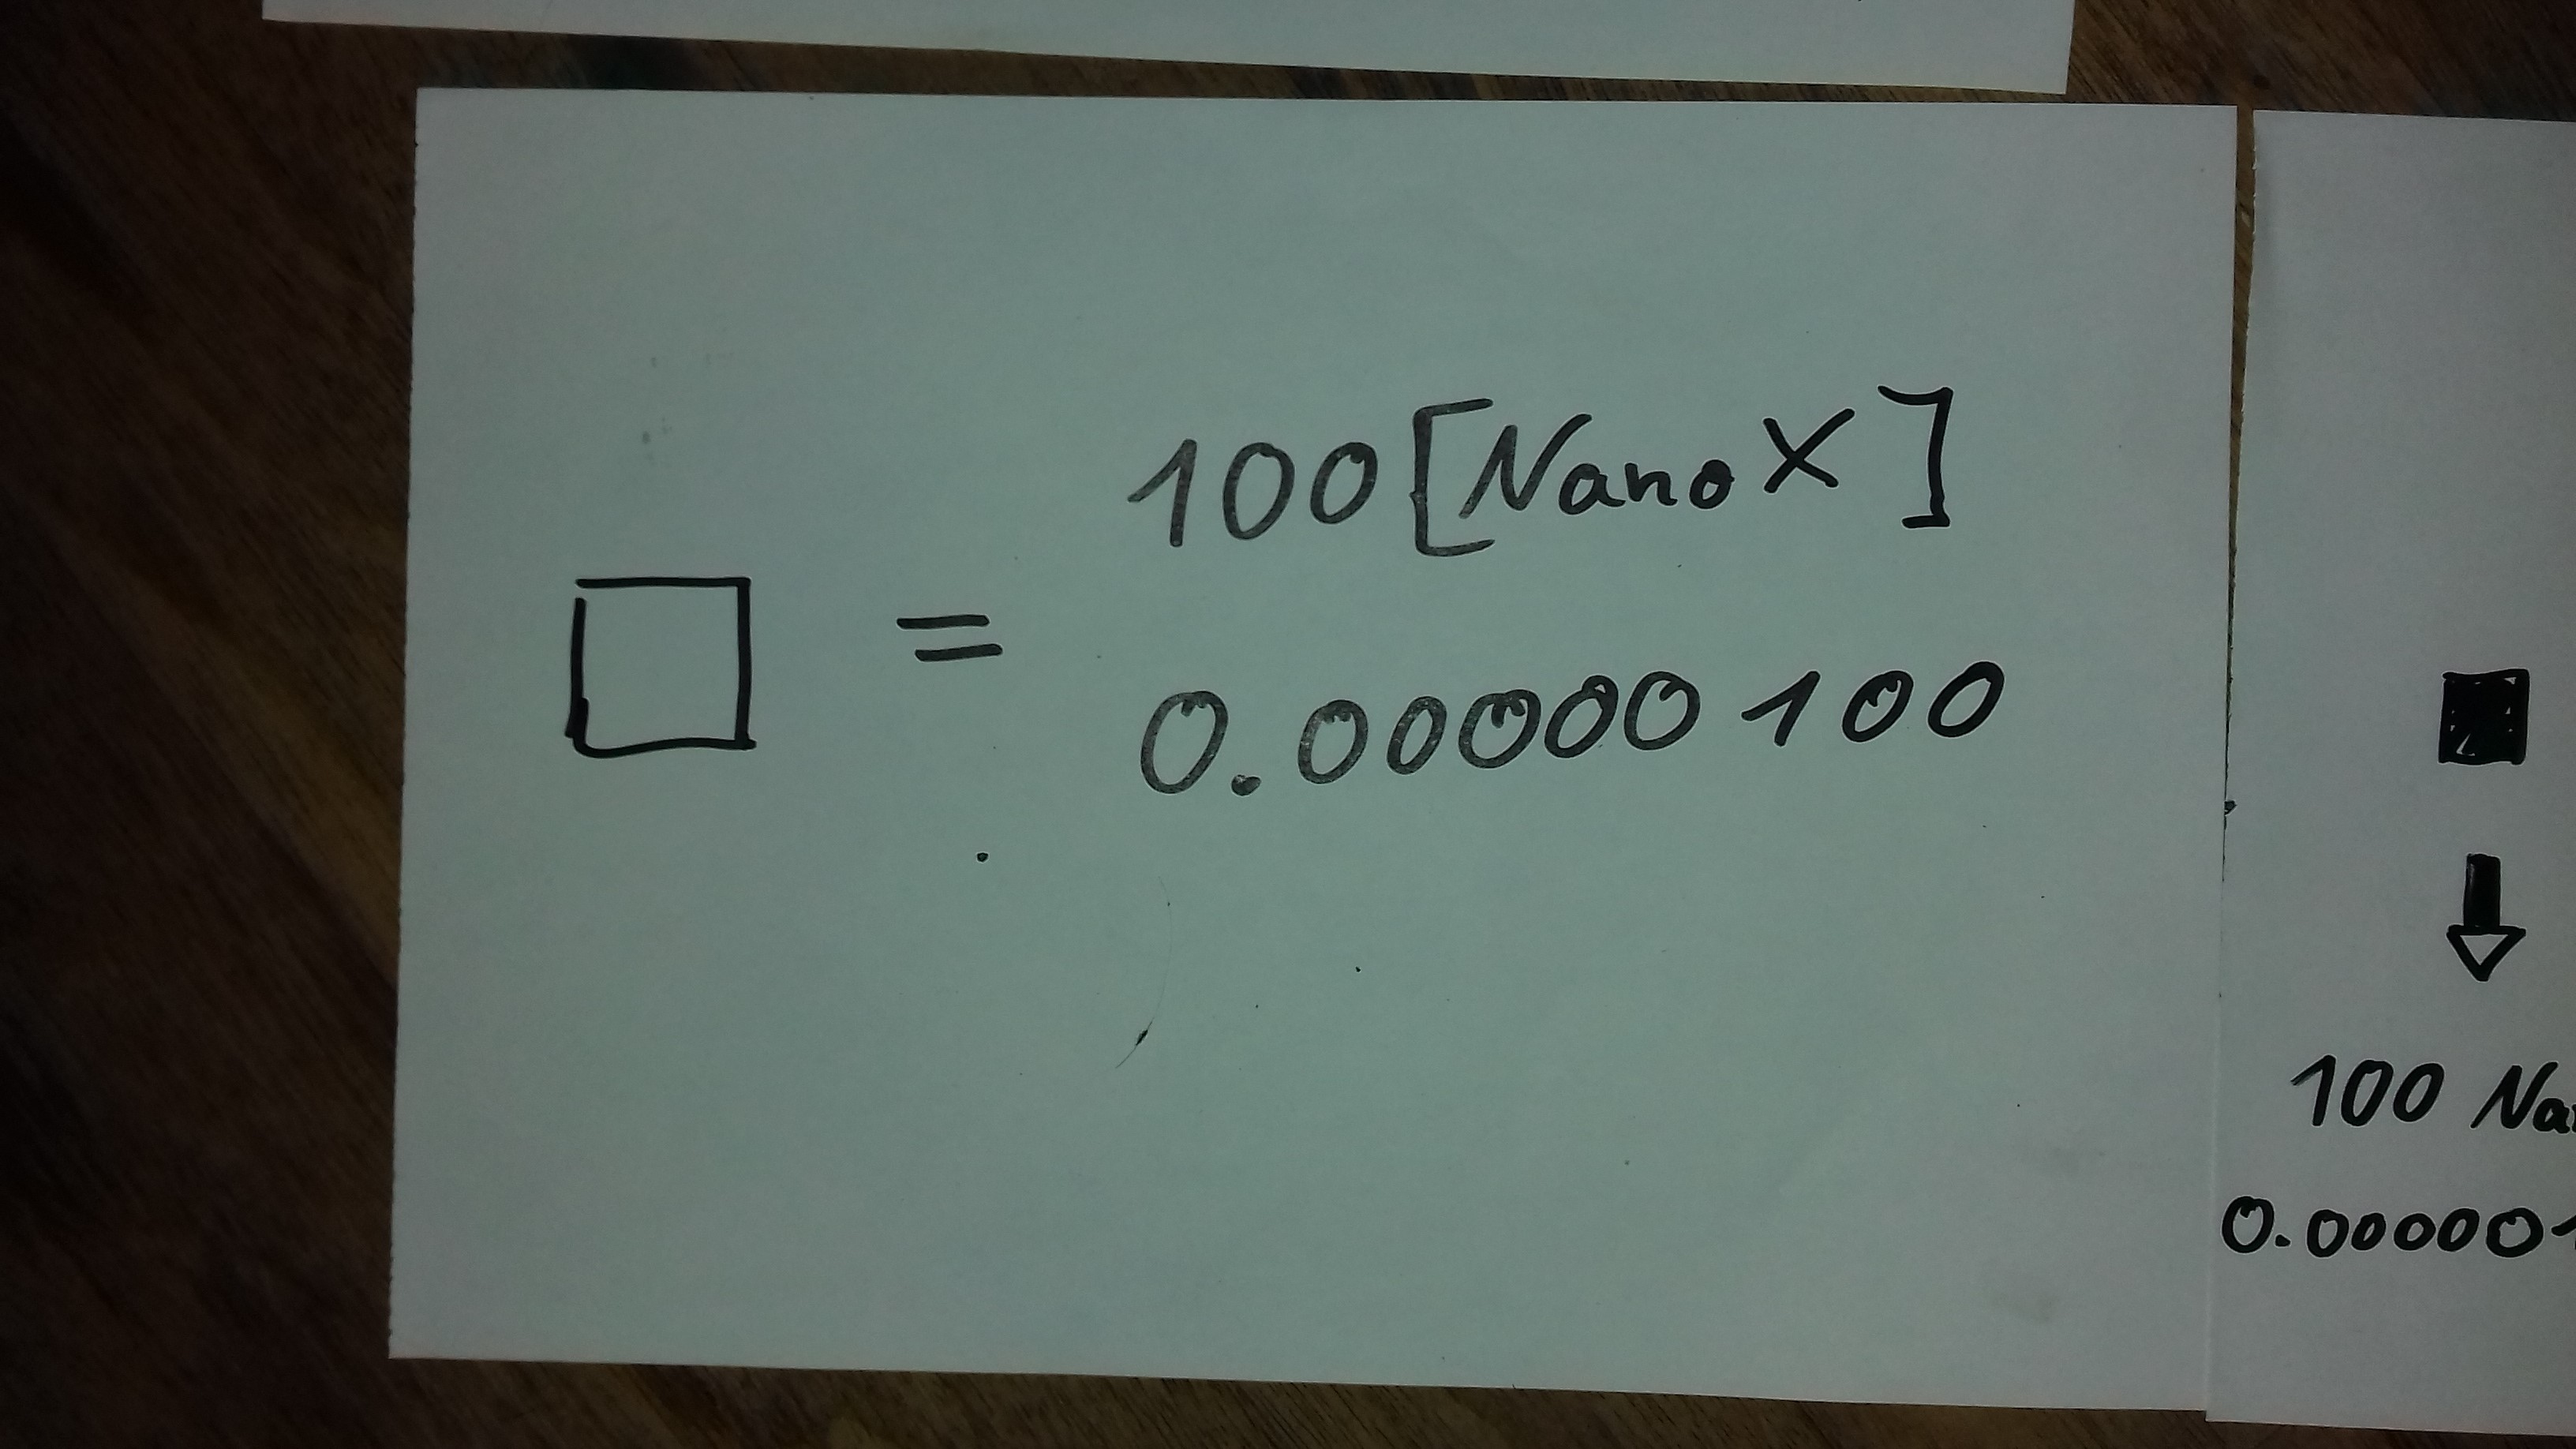 100[NanoX]
□ =
0.00000100
100
0.00000